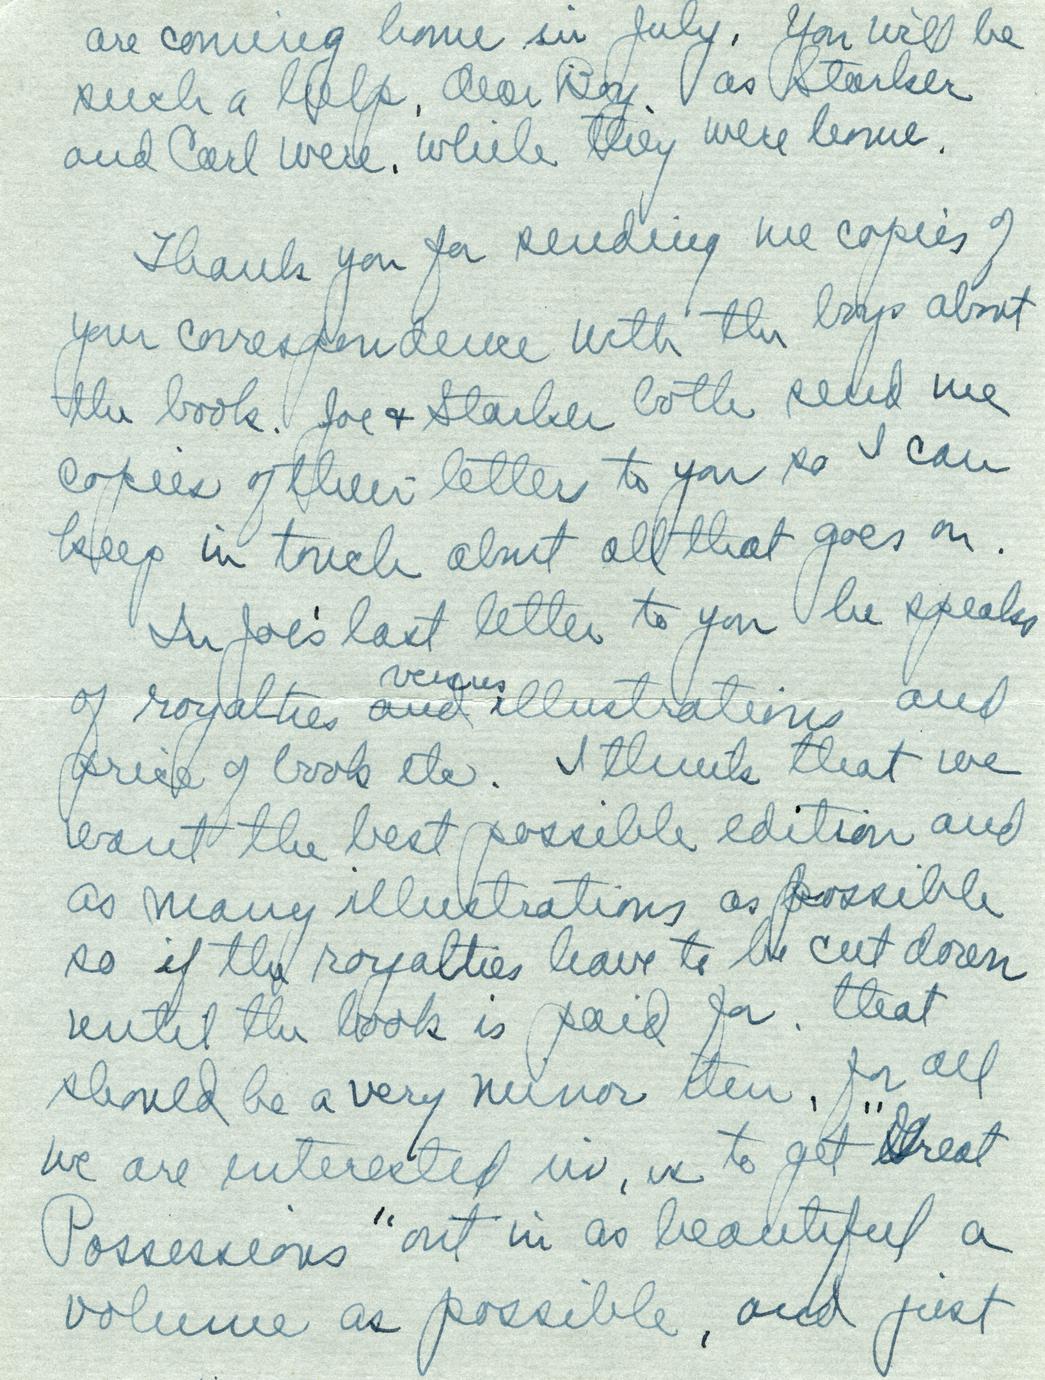 are coming home in July. You will be
such a help, dear Boy, as Starker
and Carl were, while they were home.
Thank you for sending me copies of
your correspondence with the boys about
the book. Joe & Starker both send me
copies of their letters to you so I can
keep in touch about all that goes on.
In Joe's last letter to you he speaks
of royalties and versus illustrations and
price of book etc. I think that we
want the best possible edition and
as many illustrations as possible
so if the royalties have to be cut down
until the book is paid for, that
should be a very minor item, for all
we are interested in, is to get "Great
Possessions" out in as beautiful a
volume as possible, and just